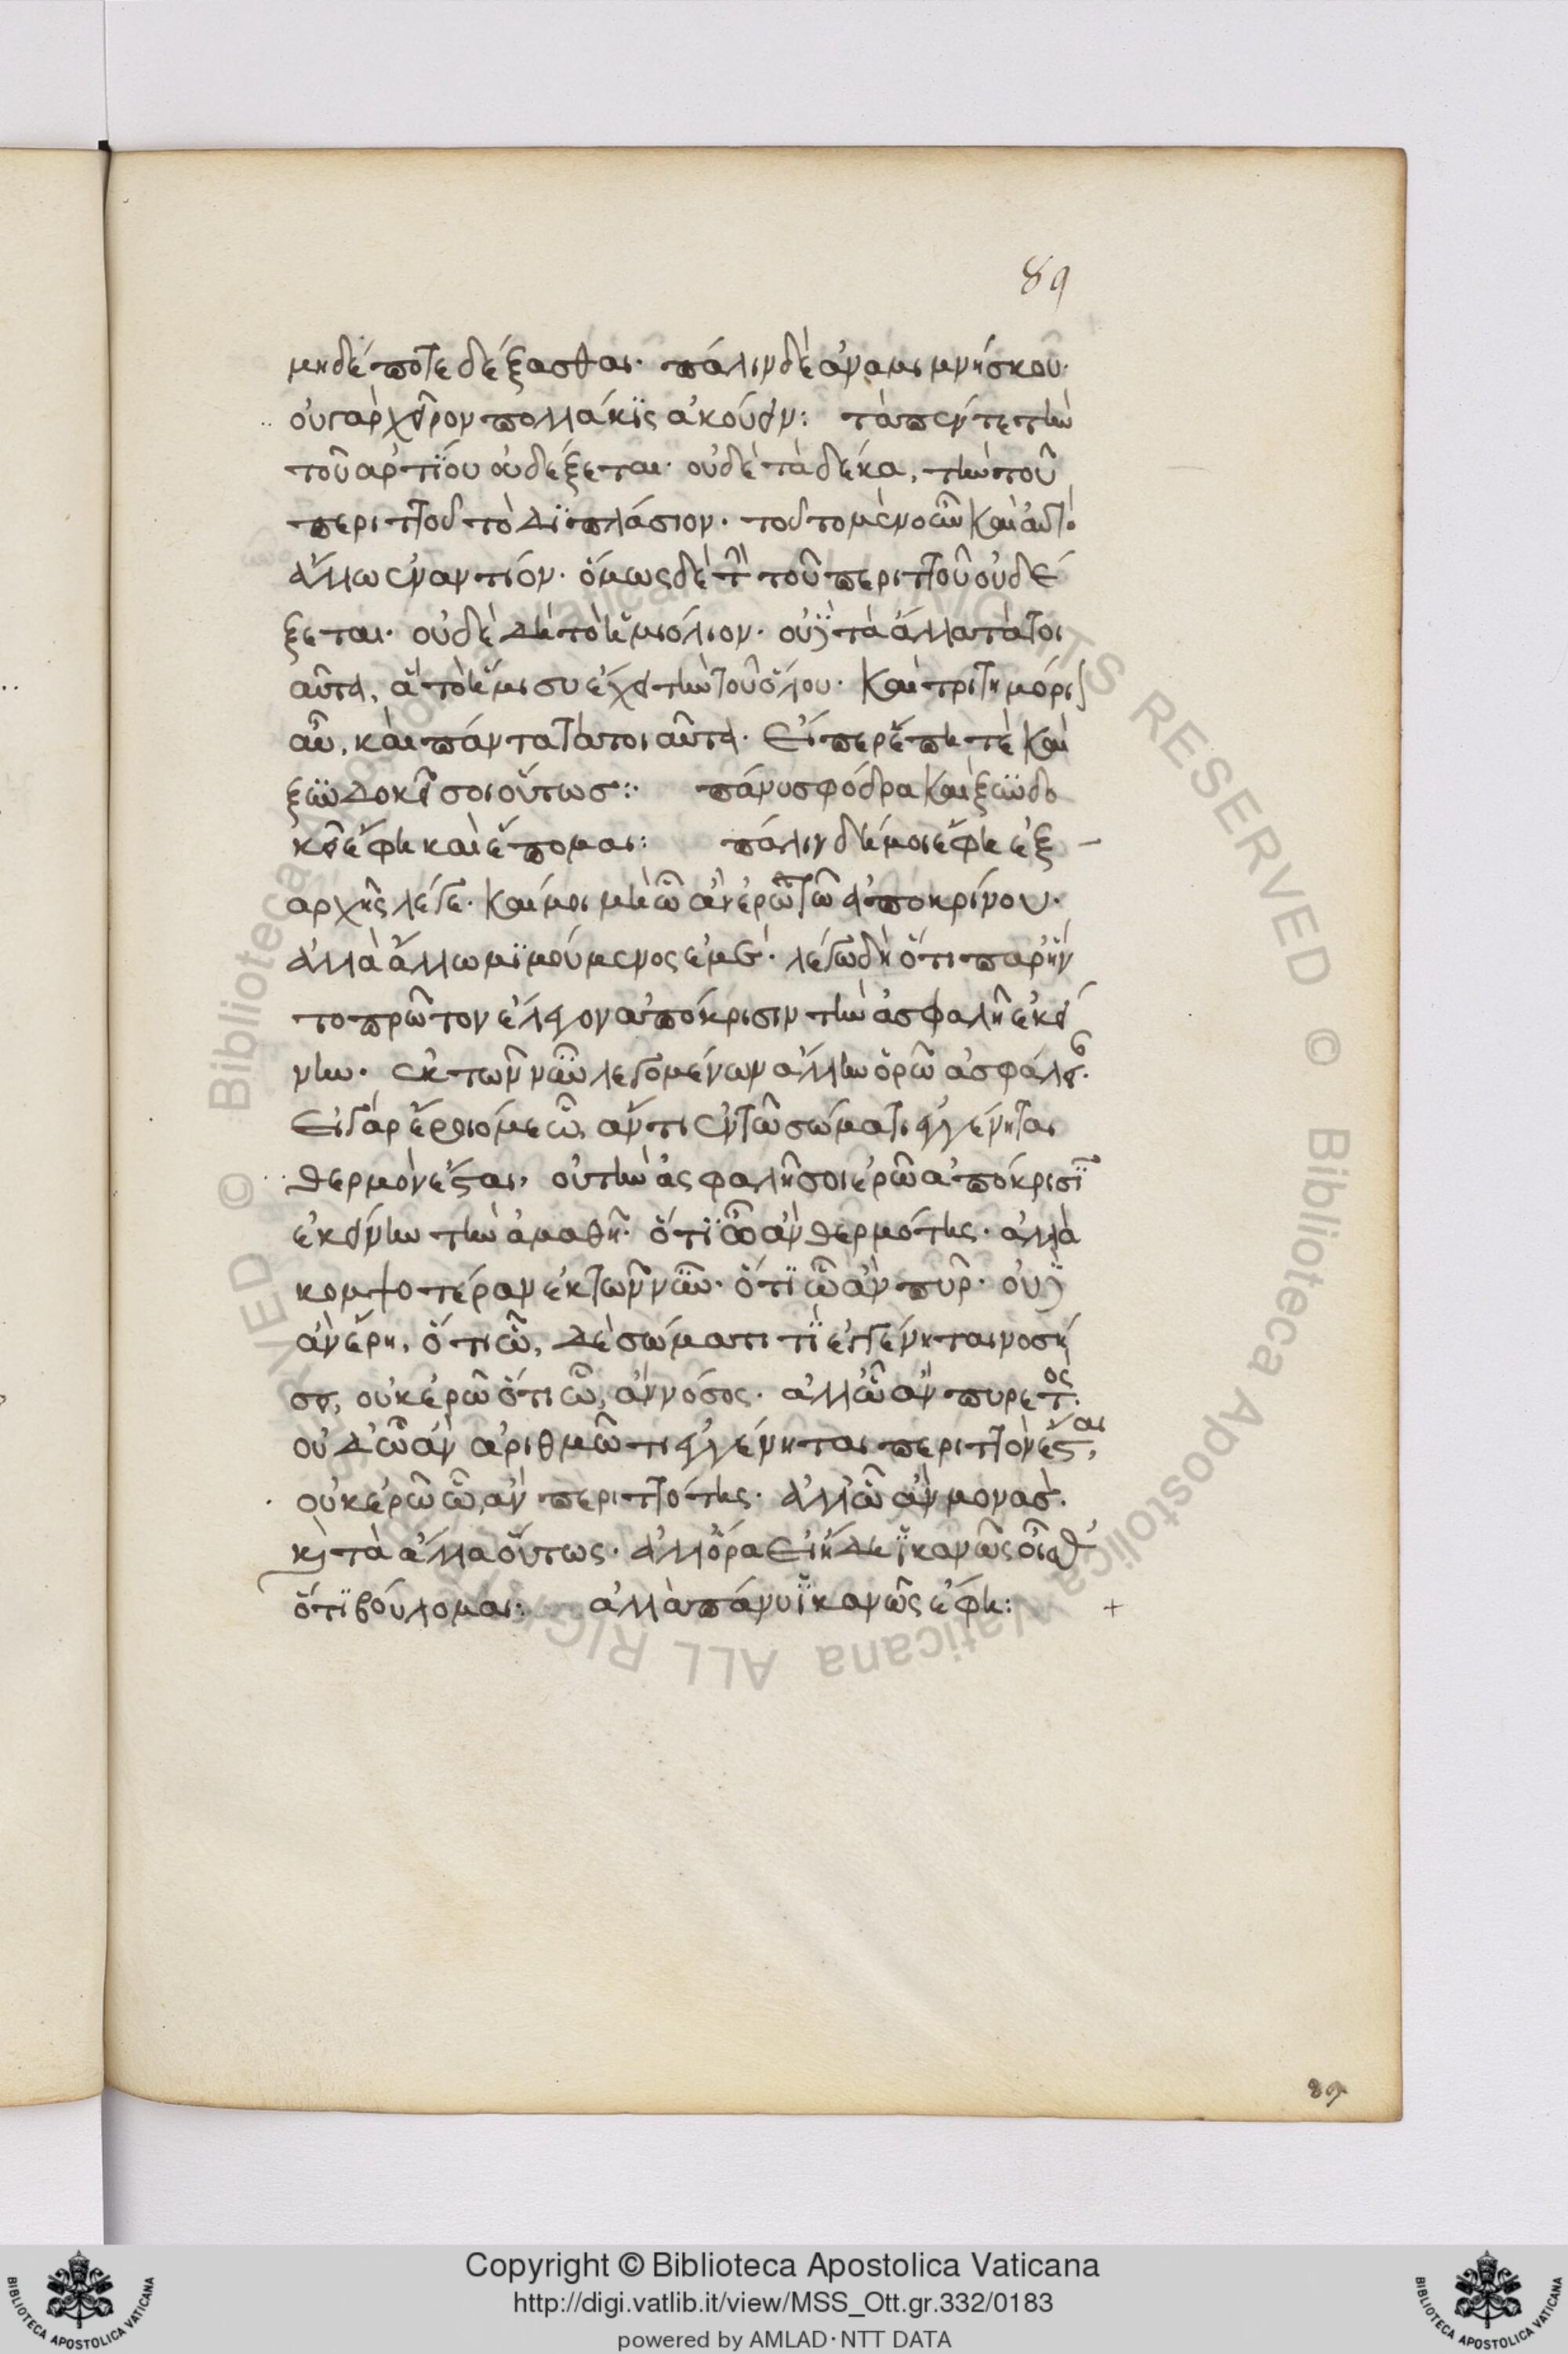 89
μηδέποτε δέξασθαι· πάλιν δὲ ἀναμιμνήσκου·
οὐ γὰρ χεῖρον πολλάκϊς ἀκούειν: τὰ πέντε τὴν
τοῦ ἀρτΐου οὐ δέξεται· οὐδὲ τὰ δέκα, τὴν τοῦ
περιττοῦ τὸ διπλάσιον· τοῦτο μὲν οὖν καὶ αὐτὸ
ἄλλω ἐναντίον· ὅμως δὲ τὴν τοῦ περιττοῦ οὐ δέ
ξεται· οὐδὲ δὴ τὸ ἡμιόλιον· οὐδὲ τὰ ἄλλα τὰ τοι
αῦτα, ἃ τὸ ἥμισυ ἔχει τὴν τοῦ ὅλου· καὶ τριτημόρι
αὖ, καὶ πάντα τὰ τοιαῦτα· εἴπερ ἕπῃ τὲ καὶ
ξυνδοκεῖ σοι οὕτωσ: πάνυ σφόδρα καὶ ξυνδο
κεῖ ἔφη καὶ ἕπομαι: πάλιν δή μοι ἔφη ἐξ
αρχῆς λέγε· καὶ μοι μὴ ὃ ἂν ἐρωτῶ ἀποκρίνου·
ἀλλὰ ἄλλω μϊμούμενος ἐμέ· λέγω δὴ ὅτι παρ' ἣν
το πρῶτον ἔλεγον ἀπόκρισιν τὴν ἀσφαλῆ ἐκεί
νην· ἐκ τῶν νῦν λεγομένων ἄλλην ὁρῶ ἀσφάλειαν·
εἰ γὰρ ἔροιό με ὧ, ἄν τι ἐν τῶ σώματι ἐγγένηται
θερμὸν ἔσται, οὐ τὴν ἀσφαλῆ σοι ἐρῶ ἀπόκρισϊν
ἐκείνην τὴν ἀμαθῆ· ὅτϊ ὧ ἂν θερμότης· ἀλλὰ
κομψοτέραν ἐκ τῶν νῦν· ὅτϊ ὧ ἂν πῦρ· οὐδὲ
ἂν ἔρη, ὅτι ὧ, δὲ σώματι τὶ ἐγγένηται νοσή
σει, οὐκ ἐρῶ ὅτι ὧ, ἂν νόσος· ἀλλ' ὧ ἂν πυρετός·
οὐδ' ὧ ἂν ἀριθμῶ τι ἐγγένηται περιττὸν ἔσται,
οὐκ ἐρῶ ὧ, ἂν περιττότης· ἀλλ' ὧ ἂν μονασ·
κὶ τὰ ἄλλα οὕτως· ἀλλ' ὅρα εἰ ἤδη ϊκανῶς οἶσθ'
ὅτϊ βούλομαι: ἀλλὰ πάνυ ϊκανῶς ἔφη: +
89
Copyright © Biblioteca Apostolica Vaticana
http://digi.vatlib.it/view/MSS_Ott.gr.332/0183
powered by AMLAD·NTT DATA